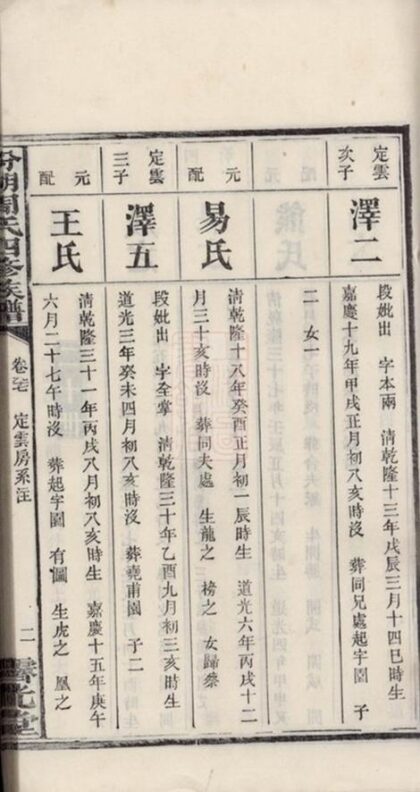 定雲
次子
澤二
段妣出 字本兩 清乾隆十三年戊辰三月十四巳時生
嘉慶十九年甲戌正月初八亥時沒 葬同兄處起字園 子
二 女一
元
配
易氏
清乾隆十八年癸酉正月初一辰時生 道光六年丙戌十二
月三十亥時沒 葬同夫處 生龍之 榜之 女歸蔡
定雲
三子
澤五
段妣出 字全掌 清乾隆三十年乙酉九月初三亥時生
道光三年癸未四月初八亥時沒 葬堯甫園 子二
元
配
王氏
清乾隆三十一年丙戌八月初八亥時生 嘉慶十五年庚午
六月二十七午時沒 葬起字園 有圖 生虎之 凰之
周氏四修族譜
定雲房系注
二